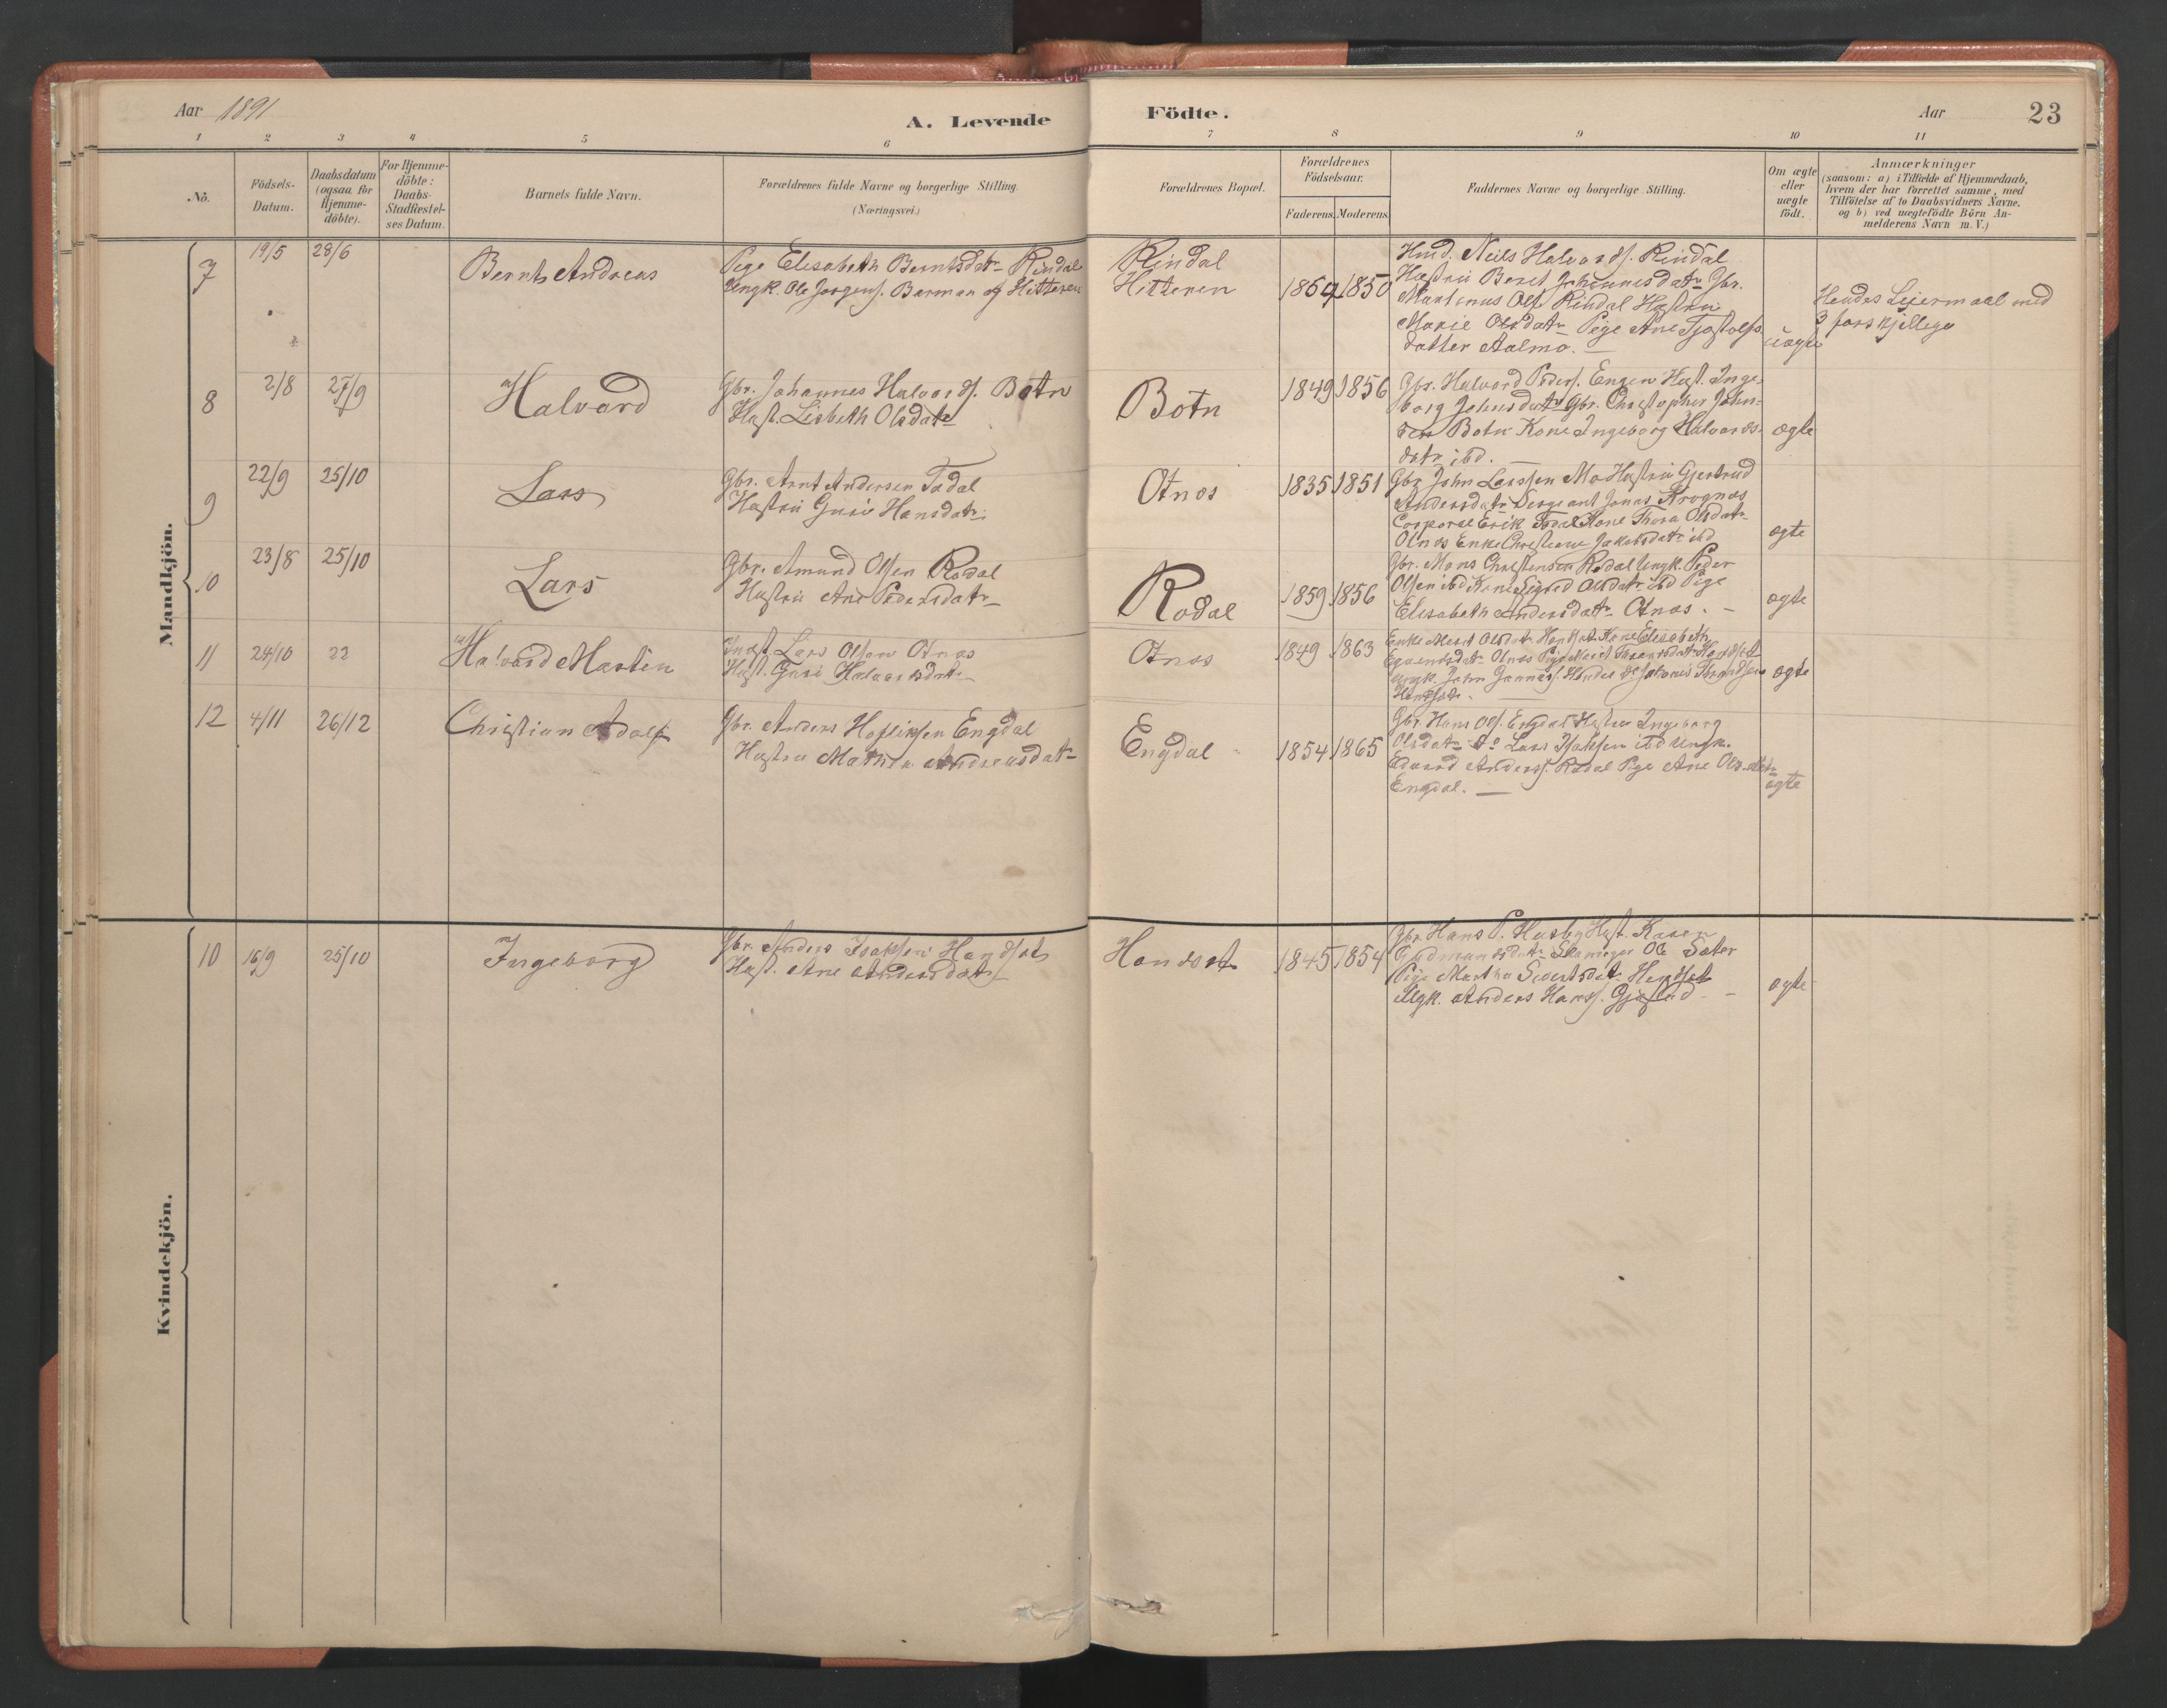 Aar 1891
A. Levende
Födte.
Aar
23
1 2 3 4 5 6 7 8 9 10 11
No.
Födsels-
Datum.
Daabsdatum
(ogsaa for
Hjemme-
döbte).
For Hjemme-
döbte:
Daabs-
Stadfæstel-
ses Datum.
Barnets fulde Navn.
Forældrenes fulde Navne og borgerlige Stilling.
(Næringsvei.)
Forældrenes Bopæl.
Forældrenes
Födselsaar.
Faderens. Moderens.
Faddernes Navne og borgerlige Stilling.
Om ægte
eller
uægte
födt.
Anmærkninger
(saasom: a) i Tilfælde af Hjemmedaab,
hvem der har forrettet samme, med
Tilföielse af to Daabsvidners Navne.
og b) ved uægtefödte Börn An-
melderens Navn m.V.)
Mandkjön.
7 19/5 28/6
Bernt Andreas
Pige Elisabeth Berntsdatr Rindal
Ungk. Ole Jørgens. Barman af Hitteren
Rindal
Hitteren
1869 1850
Hmd. Neils Halvords. Rindal
Hustru Beret Johannesdatr Gbr.
Martinus Ols Rindal Hustru
Marie Olsdatr Pige Ane Tjøstolfs
datter Aalmo.
uægte
Hendes Leiermaal med
3 forskjellige
8 2/8 27/9
Halvard
Gbr. Johannes Halvords. Botn
Hust. Lisbeth Olsdatr
Botn
1849 1856
Gbr. Halvord Peders. Engen Hust. Inge-
borg Johnsdatr Gbr. Christopher John-
sen Botn Kone Ingeborg Halvords-
datr ibd.
ægte
9 22/9 25/10
Lars
Gbr. Arnt Andersen Todal
Hustru Guri Hansdatr
Otnes
1835 1851
Gbr John Larssen Mo Hustru Gjertrud
Andersdatr Sergeant Jonas Krognes
Corporal Erik Todal Kone Thora Olsdatr
Otnes Enke Christiane Jakobsdatr ibd
ægte
10 23/8 25/10
Lars
Gbr. Amund Olsen Rodal
Hustru Ane Pedersdatr
Rodal
1859 1856
Gbr. Mons Christensen Rodal Ungk. Peder
Olsen ibd Kone Sigrid Olsdatr ibd Pige
Elisabeth Andersdatr Otnes.
ægte
11 24/10 22
Halvard Martin
Indst. Lars Olsen Otnes
Hust. Guri Halvorsdatr
Otnes
1849 1863
Enke Marit Olsdatr Kone Elisabeth
Otnes Pige Marit
Ungk. John
ægte
12 4/11 26/12
Christian Adolf
Gbr. Anders Engdal
Hustru Mathea Andreasdatr
Engdal
1854 1865
Gbr. Hans Ols. Engdal Hustru Ingeborg
Olsdatr Do Lars Isaksen ibd Ungk.
Edvard Anderss. Rodal Pige Ane Olsdatr
Engdal.
ægte
Kvindekjön.
10 16/9 25/10
Ingeborg
Gbr. Anders Isaksen Handset
Hust. Ane Andersdatr
Handset
1845 1854
Gbr Hans P. Husby Hust. Karen
Gudmundsdatr Ole Sæter
Pige Martha Sivertsdat Hendset
Ungk. Anders Hanss. Gjøsund
ægte